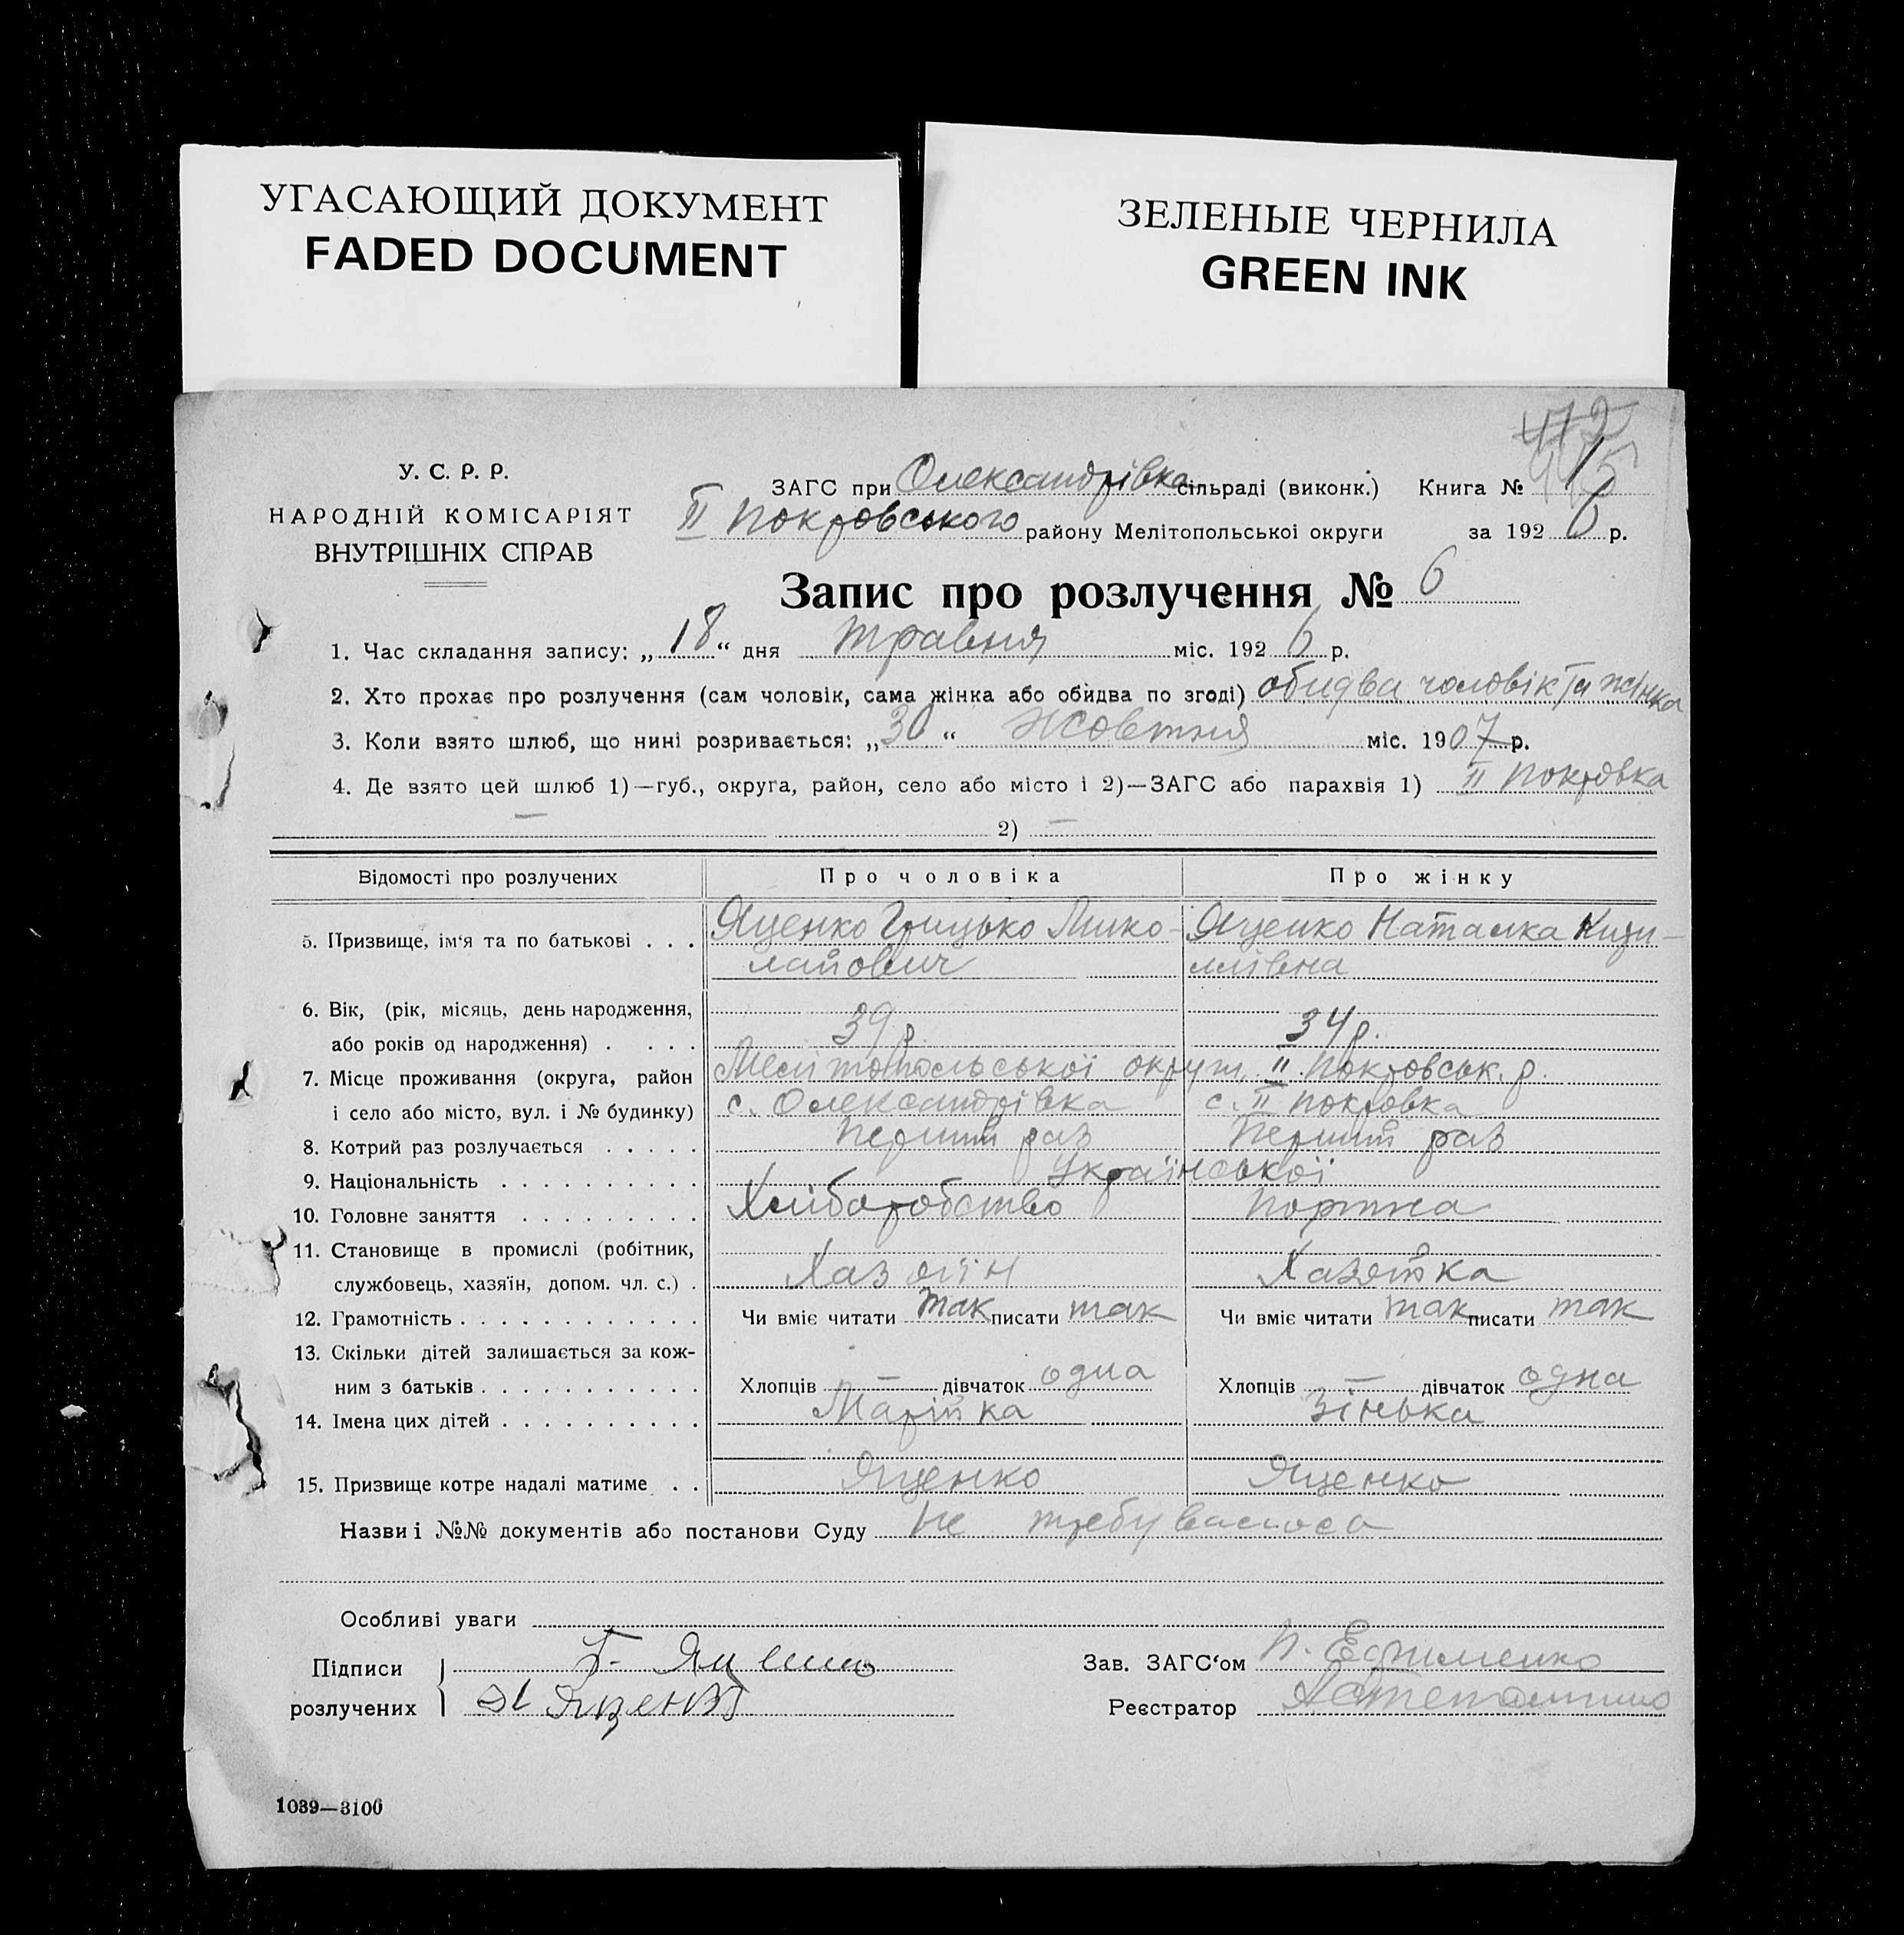 УГАСАЮЩИЙ ДОКУМЕНТ
FADED DOCUMENT
ЗЕЛЕНЫЕ ЧЕРНИЛА
GREEN INK
412
У. С. Р. Р.
НАРОДНІЙ КОМІСАРІЯТ
ВНУТРІШНІХ СПРАВ
ЗАГС при Олександрівка сільраді (виконк.) Книга № 1
II Покровського району Мелітопольської округи за 1926 р.
Запис про розлучення № 6
1. Час складання запису: „18“ дня травня міс. 1926 р.
2. Хто прохає про розлучення (сам чоловік, сама жінка або обидва по згоді) обидва чоловік та жінка
3. Коли взято шлюб, що нині розривається: „30“ Жовтня міс. 1907 р.
4. Де взято цей шлюб 1)—губ., округа, район, село або місто і 2)—ЗАГС або парахвія 1) II Покровка
— 2) —
Відомості про розлучених Про чоловіка Про жінку
5. Призвище, ім‘я та по батькові . . . Яценко Грицько Мико- Яценко Наталка
лайович
6. Вік, (рік, місяць, день народження,
або років од народження) . . . . 39 р. 34 р.
7. Місце проживання (округа, район Мелітопольської округи, II Покровськ. р.
і село або місто, вул. і № будинку) с. Олександрівка с. II Покровка
8. Котрий раз розлучається . . . . . Перший раз Перший раз
9. Національність . . . . . . . . . . Української
10. Головне заняття . . . . . . . . . Хліборобство Портна
11. Становище в промислі (робітник,
службовець, хазяїн, допом. чл. с.) . Хазяїн Хазяйка
12. Грамотність . . . . . . . . . . . . Чи вміє читати так писати так Чи вміє читати так писати так
13. Скільки дітей залишається за кож-
ним з батьків . . . . . . . . . . . Хлопців — дівчаток одна Хлопців — дівчаток одна
14. Імена цих дітей . . . . . . . . . . Марійка Зінька
15. Призвище котре надалі матиме . . Яценко Яценко
Назви і №№ документів або постанови Суду Не требувалося
Особливі уваги
Підписи Г. Яценко Зав. ЗАГС‘ом П. Ефименко
розлучених Н Яценко Реєстратор
1039—3100